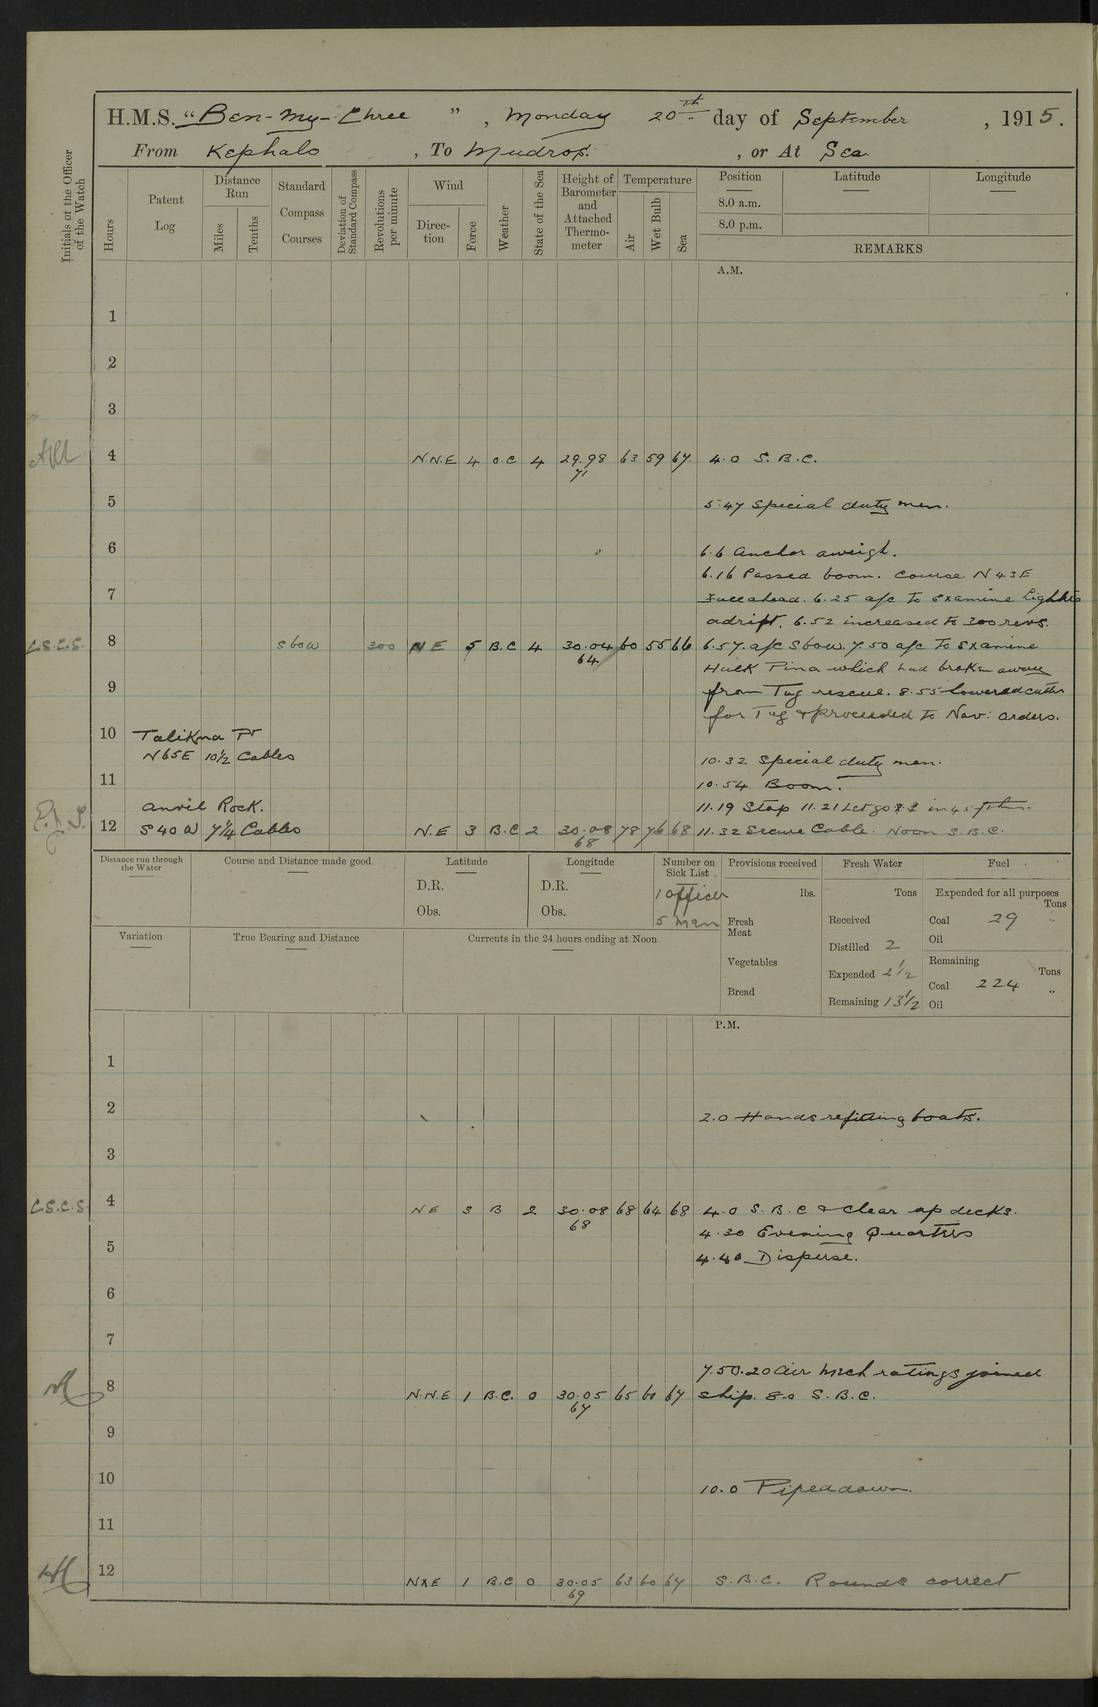 H.M.S. "Ben-my-Chree", Monday 20th day of September, 1915.
From Kephalo, To Mudros, or At Sea
Initials of the Officer of the Watch
Hours
Patent Log
Distance Run
Miles
Tenths
Standard Compass Courses
Deviation of Standard Compass
Revolutions per minute
Wind
Direction
Force
Weather
State of the Sea
Height of Barometer and Attached Thermometer
Temperature
Air
Wet Bulb
Sea
Position Latitude Longitude
8.0 a.m.
8.0 p.m.
REMARKS
A.M.
1
2
3
4 N.N.E 4 O.C 4 29.98 63 59 67 4.0 S.B.C.
71
5 5.47 Special duty men.
6 6.6 Anchor aweigh.
6.16 Passed boom. Course N43E
7 Full ahead. 6.25 a/c to examine lighter
adrift. 6.52 increased to 300 revs.
L.S.C.S. 8 S60W 300 NE 5 B.C 4 30.04 60 55 66 6.57. a/c S60W. 7.50 a/c to examine
64
Hulk Pina which had broken away
9 from Tug rescue. 8.55 lowered cutter
for Tug & proceeded to Nav: orders.
10 Talikna Pt
N65E 10½ Cables 10.32 Special duty men.
11 10.54 Boom.
Anvil Rock. 11.19 Stop 11.21 Let go in 45 fthm.
12 S40W 7¼ Cables N.E 3 B.C 2 30.08 78 76 68 11.32 Secure Cable. Noon S.B.C.
68
Distance run through the Water
Course and Distance made good
Latitude
D.R.
Obs.
Longitude
D.R.
Obs.
Number on Sick List
1 officer
5 men
Provisions received
lbs.
Fresh Meat
Vegetables
Bread
Fresh Water
Tons
Received
Distilled 2
Expended 2½
Remaining 13½
Fuel
Expended for all purposes
Tons
Coal 29 "
Oil
Remaining
Tons
Coal 224 "
Oil
Variation
True Bearing and Distance
Currents in the 24 hours ending at Noon
P.M.
1
2 2.0 Hands refitting boats.
3
L.S.C.S. 4 NE 3 B 2 30.08 68 64 68 4.0 S.B.C & Clear up decks.
68
4.30 Evening Quarters
5 4.40 Disperse.
6
7
7.50. 20 Air Mech ratings joined
8 N.N.E 1 B.C. 0 30.05 65 60 67 ship. 8.0 S.B.C.
67
9
10 10.0 Pipe down.
11
12 NxE 1 B.C 0 30.05 63 60 67 S.B.C. Rounds correct
69